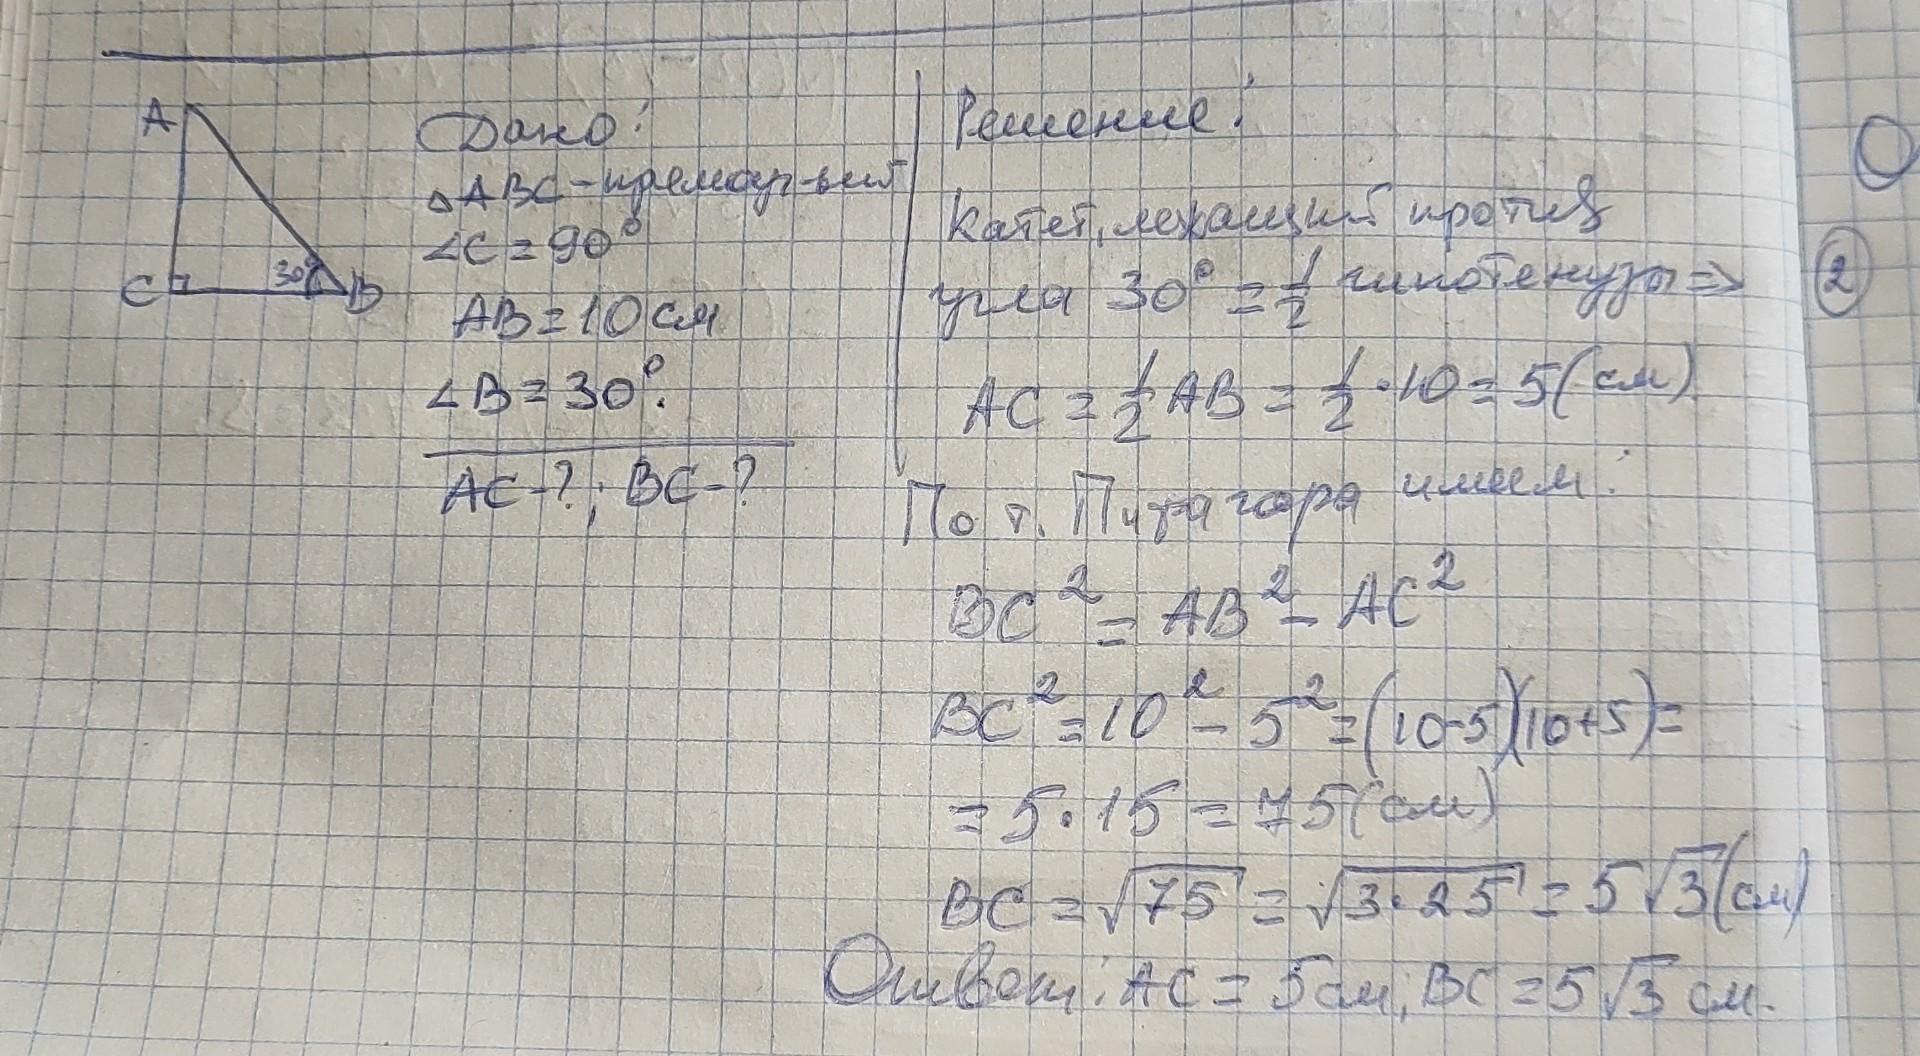 A
C
30°
B
Дано:
△ABC - прямоуг-ый
∠C = 90°
AB = 10 см
∠B = 30°.
AC - ?; BC - ?
Решение:
Катет, лежащий против
угла 30° = 1/2 гипотенузы ⇒
AC = 1/2 AB = 1/2 · 10 = 5 (см)
По т. Пифагора имеем:
BC² = AB² - AC²
BC² = 10² - 5² = (10-5)(10+5) =
= 5 · 15 = 75 (см)
BC = √75 = √3·25 = 5√3 (см)
Ответ: AC = 5 см; BC = 5√3 см.
2